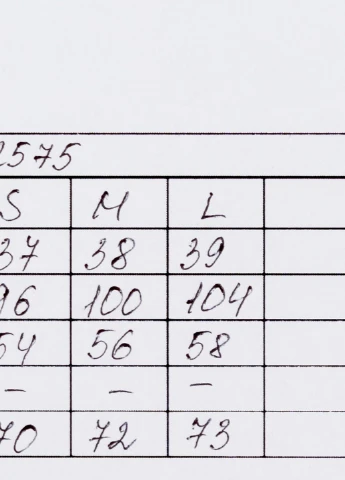 2575
S M L
37 38 39
96 100 104
54 56 58
– – –
70 72 73